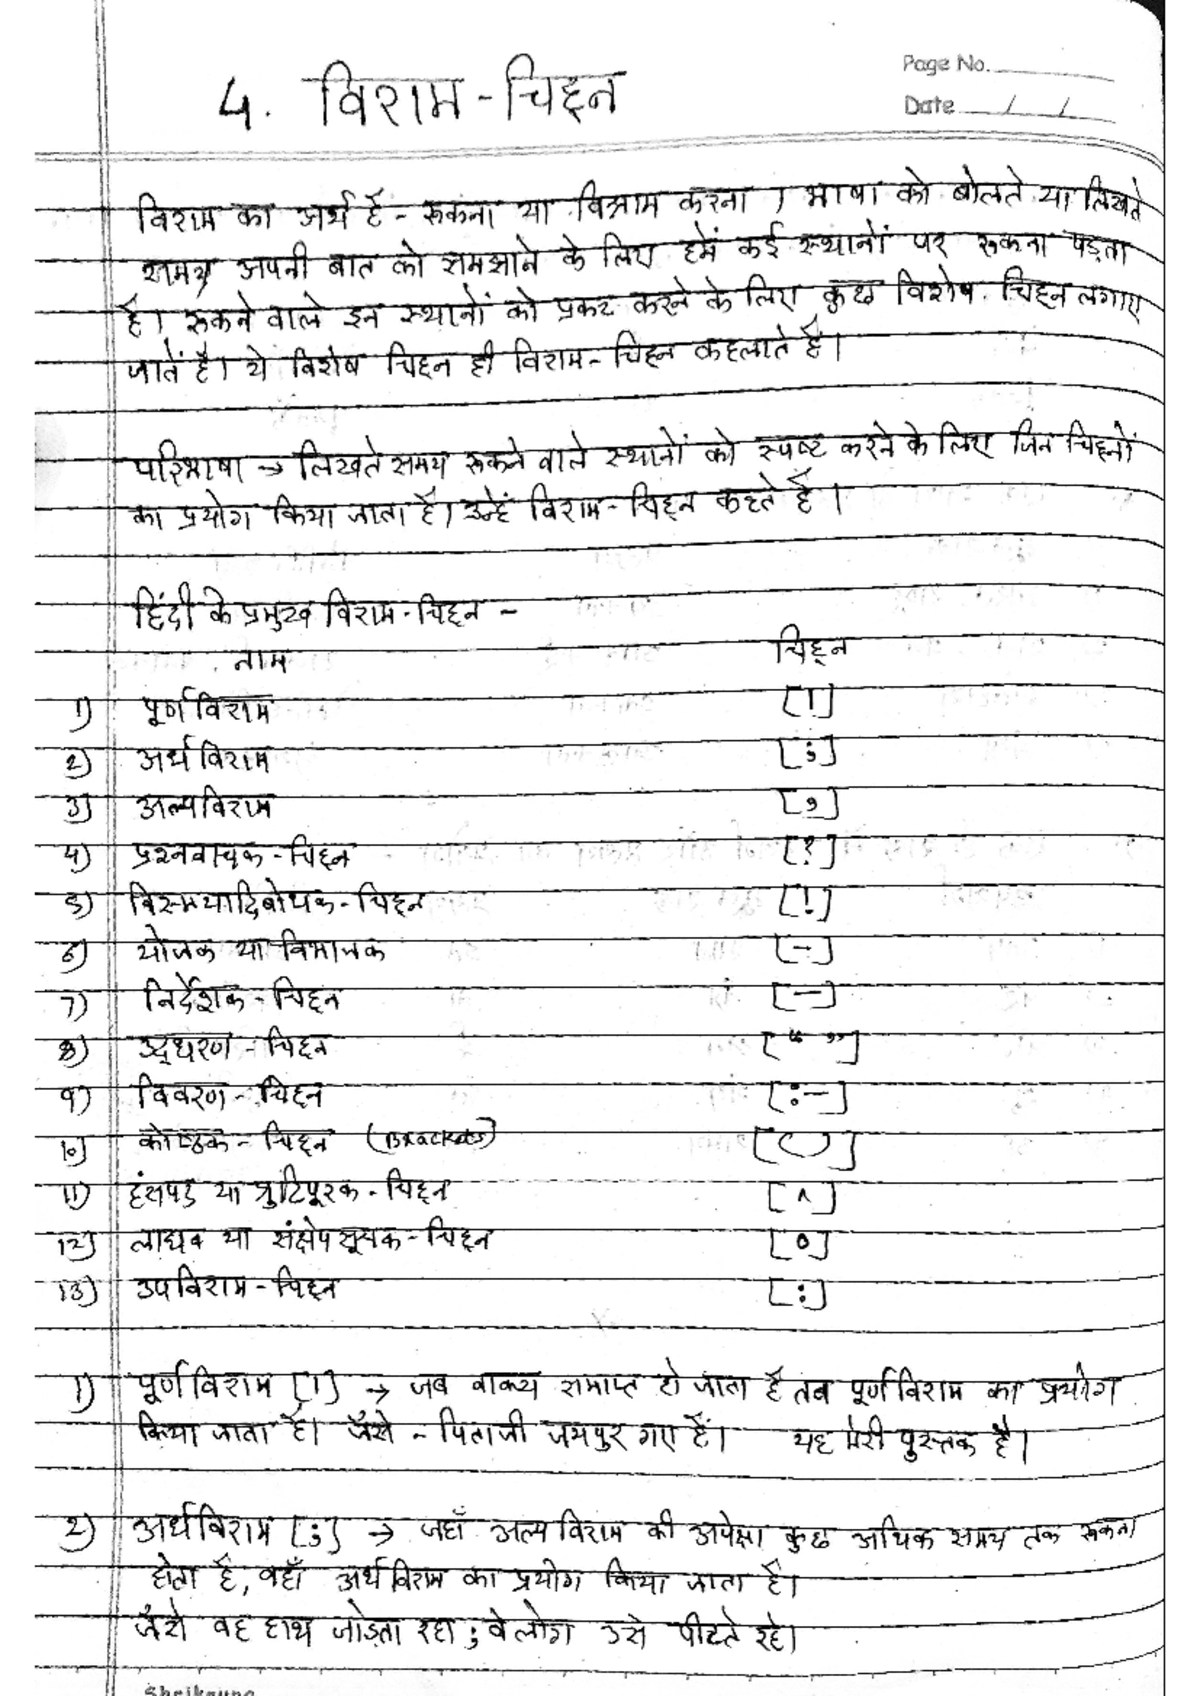 Page No.
Date / /
4. विराम - चिह्न
विराम का अर्थ है - रूकना या विश्राम करना । भाषा को बोलते या लिखते
समय अपनी बात को समझाने के लिए हमें कई स्थानों पर रूकना पड़ता
है। रूकने वाले इन स्थानों को प्रकट करने के लिए कुछ विशेष चिह्न लगाए
जातें है। ये विशेष चिह्न ही विराम - चिह्न कहलाते हैं।
परिभाषा → लिखते समय रूकने वाले स्थानों को स्पष्ट करने के लिए जिन चिह्नों
का प्रयोग किया जाता है। उन्हें विराम - चिह्न कहते हैं ।
हिंदी के प्रमुख विराम - चिह्न -
नाम चिह्न
1) पूर्ण विराम [।]
2) अर्ध विराम [;]
3) अल्पविराम [,]
4) प्रश्नवाचक - चिह्न [?]
5) विस्मयादिबोधक - चिह्न [!]
6) योजक या विभाजक [-]
7) निर्देशक - चिह्न [—]
8) उद्धरण - चिह्न [“ ”]
9) विवरण - चिह्न [:-]
10) कोष्ठक - चिह्न (Brackets) [()]
11) हंसपद या त्रुटिपूरक - चिह्न [^]
12) लाघव या संक्षेपसूचक - चिह्न [०]
13) उपविराम - चिह्न [:]
1) पूर्ण विराम [।] → जब वाक्य समाप्त हो जाता है तब पूर्ण विराम का प्रयोग
किया जाता है। जैसे - पिताजी जयपुर गए हैं। यह मेरी पुस्तक है।
2) अर्धविराम [;] → जहाँ अल्प विराम की अपेक्षा कुछ अधिक समय तक रूकना
होता है, वहाँ अर्ध विराम का प्रयोग किया जाता है।
जैसे वह हाथ जोड़ता रहा ; वे लोग उसे पीटते रहे।